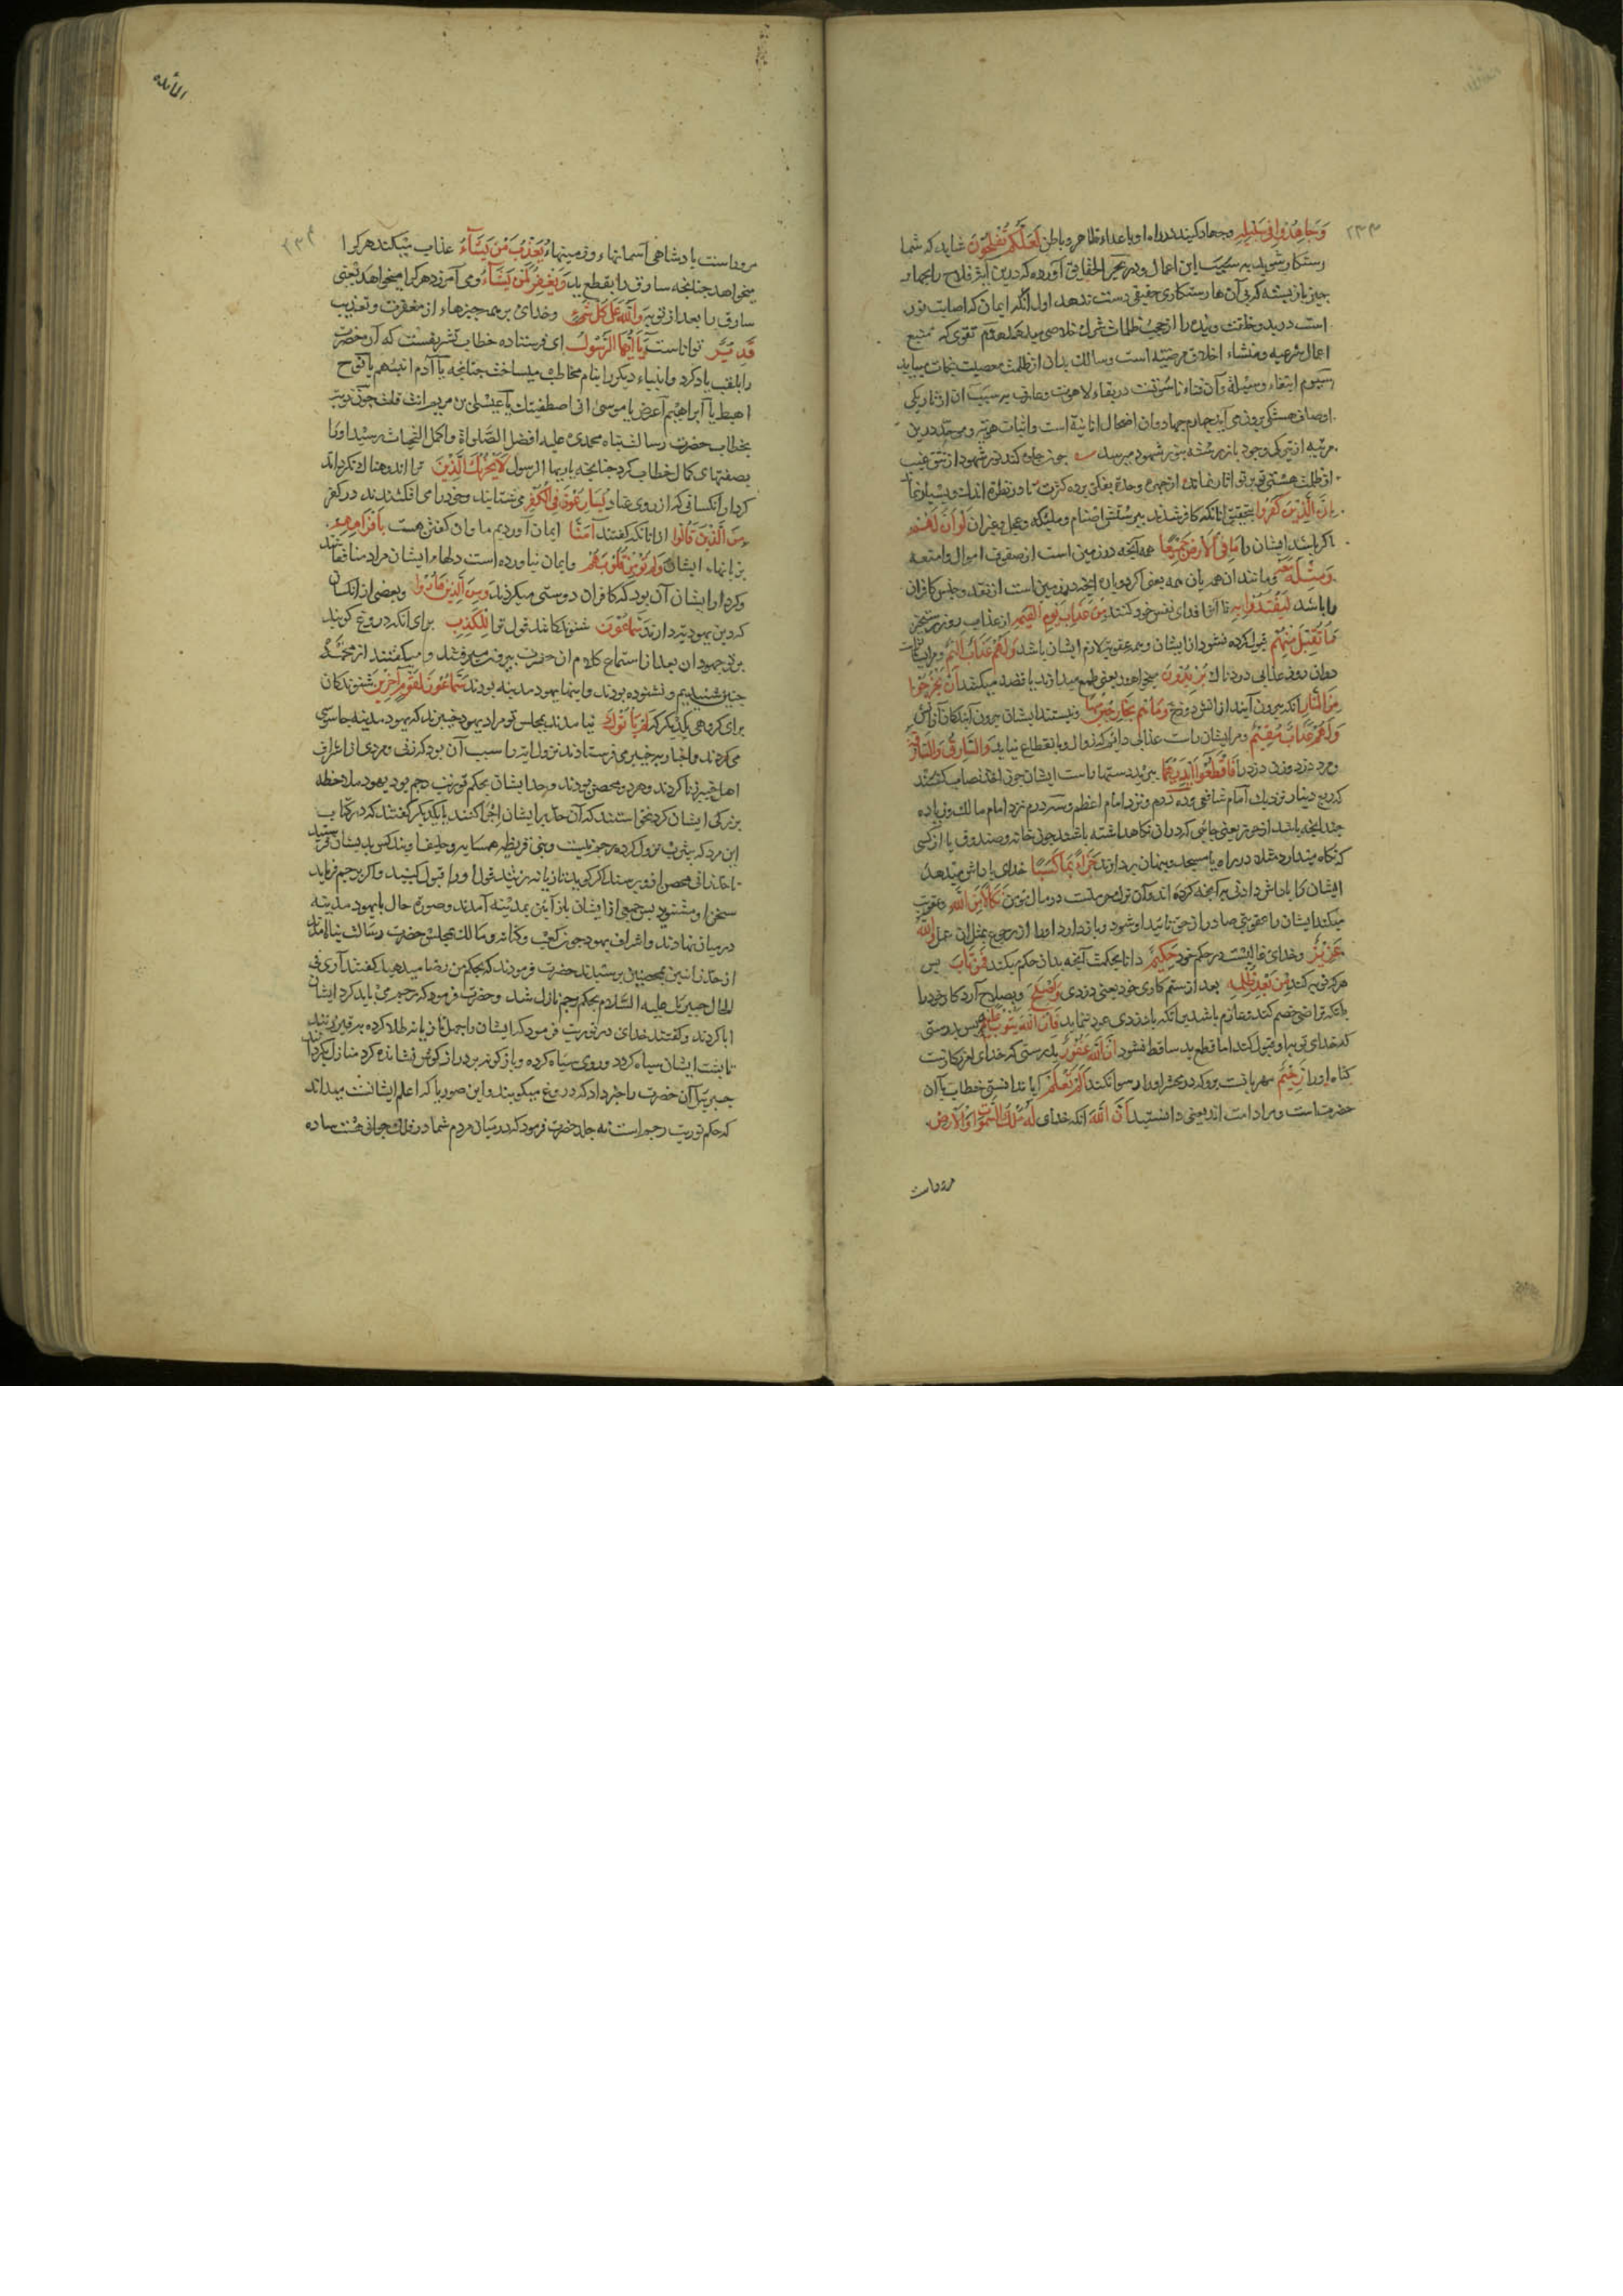 ۲۳۳
وَجَاهِدُوا فِي سَبِيلِهِ وجهاد کنید در راه او با اعداء ظاهر و باطن لَعَلَّكُمْ تُفْلِحُونَ شاید که شما
رستکار شوید به سبب این اعمال و در بحر الحقایق آورده که درین آیة فلاح را بچهار
چیز باز بسته که بی آن ها رستکاری حقیقی دست ندهد اول انکه ایمان که اصابت نور
است در بدو خلقت و بنده را از حجب ظلمات شرک خلاصی میدهد دوم تقوی که منبع
اعمال شرعیه و منشاء اخلاق مرضیه است و سالک بدان از ظلمت معصیت نجات میابد
سیوم ابتغاء وسیله و آن فناء ناسوتست در بقاء لاهوت و عارف به سبب ان از تاریکی
اوصاف هستی برون می آید چهارم جهاد و ان اضمحلال انانیة است و اثبات هویه و موحد درین
مرتبه از تیرکی وجود باز رسته بنور شهود میرسد چون جلوه کند نور شهود از تتق غیب
از ظلمت هستی بر تو اثار نماند
إِنَّ الَّذِينَ كَفَرُوا بتحقیق انانکه کافر شدند به پرستش اصنام و ملیکه و عجل و عزیر ان لَوْ أَنَّ لَهُمْ
اکر باشد ایشان را مَا فِي الْأَرْضِ جَمِيعًا همه آنچه در زمین است از صفوف اموال و امتعه
وَمِثْلَهُ مَعَهُ و مانند ان همه بان همه یعنی اکر دوباره انچه در زمین است از نقد و جنس کافران
را باشد لِيَفْتَدُوا بِهِ تا انرا فدای نفس خود کنند مِنْ عَذَابِ يَوْمِ الْقِيَمَةِ از عذاب روز رستخیز
مَا تُقُبِّلَ مِنْهُمْ قبول کرده نشود از ایشان و همه عقوبة لازم ایشان باشد وَلَهُمْ عَذَابٌ أَلِيمٌ و مر ایشانراست
دران روز عذابی دردناک يُرِيدُونَ میخواهند یعنی طمع میدارند یا قصد میکنند أَنْ يَخْرُجُوا
مِنَ النَّارِ انکه بیرون آیند از اتش دوزخ وَمَا هُمْ بِخَارِجِينَ مِنْهَا و نیستند ایشان بیرون آیندکان از اتش
وَلَهُمْ عَذَابٌ مُقِيمٌ و مر ایشان راست عذابی دائم که زوال و انقطاع نیابد وَالسَّارِقُ وَالسَّارِقَةُ
و مرد دزد و زن دزد را فَاقْطَعُوا أَيْدِيَهُمَا ببرید دستهای راست ایشان چون اخذ نصاب کنند
که ربع دینار نزدیک امام شافعی و ده درم نزد امام اعظم و سه درم نزد امام مالک و زیاده
چندانچه باشد از حرز یعنی جائی که دران نکاهداشته باشند چون خانه و صندوق یا از کسی
که نکاه میدارد مثلا در راه یا مسجد و پنهان بردارند جَزَاءً بِمَا كَسَبَا خدای پاداش میدهد
ایشان را پاداش دادنی به آنچه کرده اند و آن ترک حرمتست در مال مؤمن نَكَالًا مِنَ اللَّهِ و عقوبت
میکند ایشان را عقوبتی صادر از حق تا پند او شود و باز دارد او را از رجوع بمثل ان عمل وَاللَّهُ
عَزِيزٌ و خدای غالبست در حکم خود حَكِيمٌ دانا بحکمت آنچه بدان حکم میکند فَمَنْ تَابَ پس
هر که توبه کند مِنْ بَعْدِ ظُلْمِهِ بعد از ستم کاری خود یعنی دزدی وَأَصْلَحَ و بصلاح آرد کار خود را
بانکه تراضی خصم کند و عازم باشد بر آنکه باز دزدی عود ننماید فَإِنَّ اللَّهَ يَتُوبُ عَلَيْهِ پس بدرستی
که خدای توبه او قبول کند اما قطع ید ساقط نشود إِنَّ اللَّهَ غَفُورٌ بدرستی که خدای امرزکارست
کناه او را رَحِيمٌ مهربانست برو که در محشر او را رسوا نکند أَلَمْ تَعْلَمْ ایا ندانستی خطاب با آن
حضرت است و مراد امت اند یعنی دانستید أَنَّ اللَّهَ انکه خدای لَهُ مُلْكُ السَّمَوَاتِ وَالْأَرْضِ
مرو راست
المائده
۲۳۴
مرو راست پادشاهی آسمانهاء و زمینهاء يُعَذِّبُ مَنْ يَشَآءُ عذاب میکند هر کرا
میخواهد چنانچه سارق را بقطع ید وَيَغْفِرُ لِمَنْ يَشَآءُ و می آمرزد هر کرا میخواهد یعنی
سارق را بعد از توبه وَاللَّهُ عَلَى كُلِّ شَيْءٍ و خدای بر همه چیزهاء از مغفرت و تعذیب
قَدِيرٌ تواناست يَا أَيُّهَا الرَّسُولُ ای فرستاده خطاب تشریفست که آن حضرت
را بلقب یاد کرد و انبیاء دیکر را بنام مخاطب میساخت چنانچه یا آدم انبئهم یا نوح
اهبط یا ابراهیم اعرض یا موسی انی اصطفیتک یا عیسی بن مریم انت قلت چون نوبت
بخطاب حضرت رسالتپناه محمدی علیه افضل الصلواة و اکمل التحیات رسید او را
بصفتهای کمال خطاب کرد چنانچه یا ایها الرسول لَا يَحْزُنْكَ الَّذِينَ ترا اندوهناک نکرداند
کردار انکسانی که از روی عناد يُسَارِعُونَ فِي الْكُفْرِ می شتابند و خود را می افکنند در کفر
مِنَ الَّذِينَ قَالُوا از انانکه کفتند آمَنَّا ایمان آوردیم ما و ان کفتن هست بِأَفْوَاهِهِمْ
بزبانهاء ایشان وَلَمْ تُؤْمِنْ قُلُوبُهُمْ و ایمان نیاورده است دلهاء ایشان مراد منافقانند
و کردار ایشان آن بود که کافران دوستی میکردند وَمِنَ الَّذِينَ هَادُوا و بعضی از انکسان
که دین یهودیه دارند سَمَّاعُونَ شنوندکانند قول ترا لِلْكَذِبِ برای انکه دروغ کویند
بر تو جهودان بعد از استماع کلام ان حضرت بیرون میرفتند و میکفتند از محمد
چنین شنیدیم و نشنوده بودند و اینها یهود مدینه بودند سَمَّاعُونَ لِقَوْمٍ آخَرِينَ شنوندکان
برای کروهی یکدیکر که لَمْ يَأْتُوكَ نیامدند بمجلس تو مراد یهود خیبرند که یهود مدینه جاسوسی
می کردند و اخبار به خیبر می فرستادند نزول ایه را سبب آن بود که زنی و مردی از اشراف
اهل خیبر زنا کردند و هر دو محصن بودند و حد ایشان بحکم توریت رجم بود یهود ملاحظه
بزرکی ایشان کرده نخواستند که آن حد بر ایشان اجرا کنند با یکدیکر کفتند که در کتاب
این مرد که بیثرب نزول کرده رجم نیست و بنی قریظه همسایه و حلیف اویند کس بدیشان فرستید
تا حد زانی محصن از و بپرسند اکر کوید تازیانه زنند قول او را قبول کنید و اکر برجم فرماید
سخن او مشنوید پس جمعی از ایشان باز آئین بمدینه آمدند و صورة حال با یهود مدینه
در میان نهادند و اشراف یهود چون کعب و کنانه و مالک بمجلس حضرت رسالت پناه آمدند
از حد زانیین محصنین پرسیدند حضرت فرمودند که بحکم من رضا میدهید کفتند آری فی
الحال جبریل علیه السلام بحکم رجم نازل شد و حضرت فرمود که رجم می باید کرد ایشان
ابا کردند و کفتند خدای در توریت فرمود که ایشان را چهل تازیانه طلا کرده به قیر زنند
تا پشت ایشان سیاه کردد و روی سیاه کرده و باژ کونه بر دراز کوش نشانده کرد منازل بکردانند
جبریل آن حضرت را خبر داد که دروغ میکویند و این صوریا که اعلم ایشانست میداند
که حکم توریت رجم است نه جلد حضرت فرمود که در میان مردم شما در فدک جوانی هست ساده